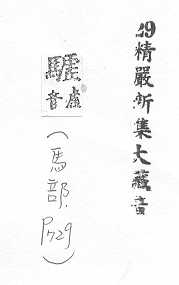 29精嚴新集大藏音
盧音
(馬部.P.729)